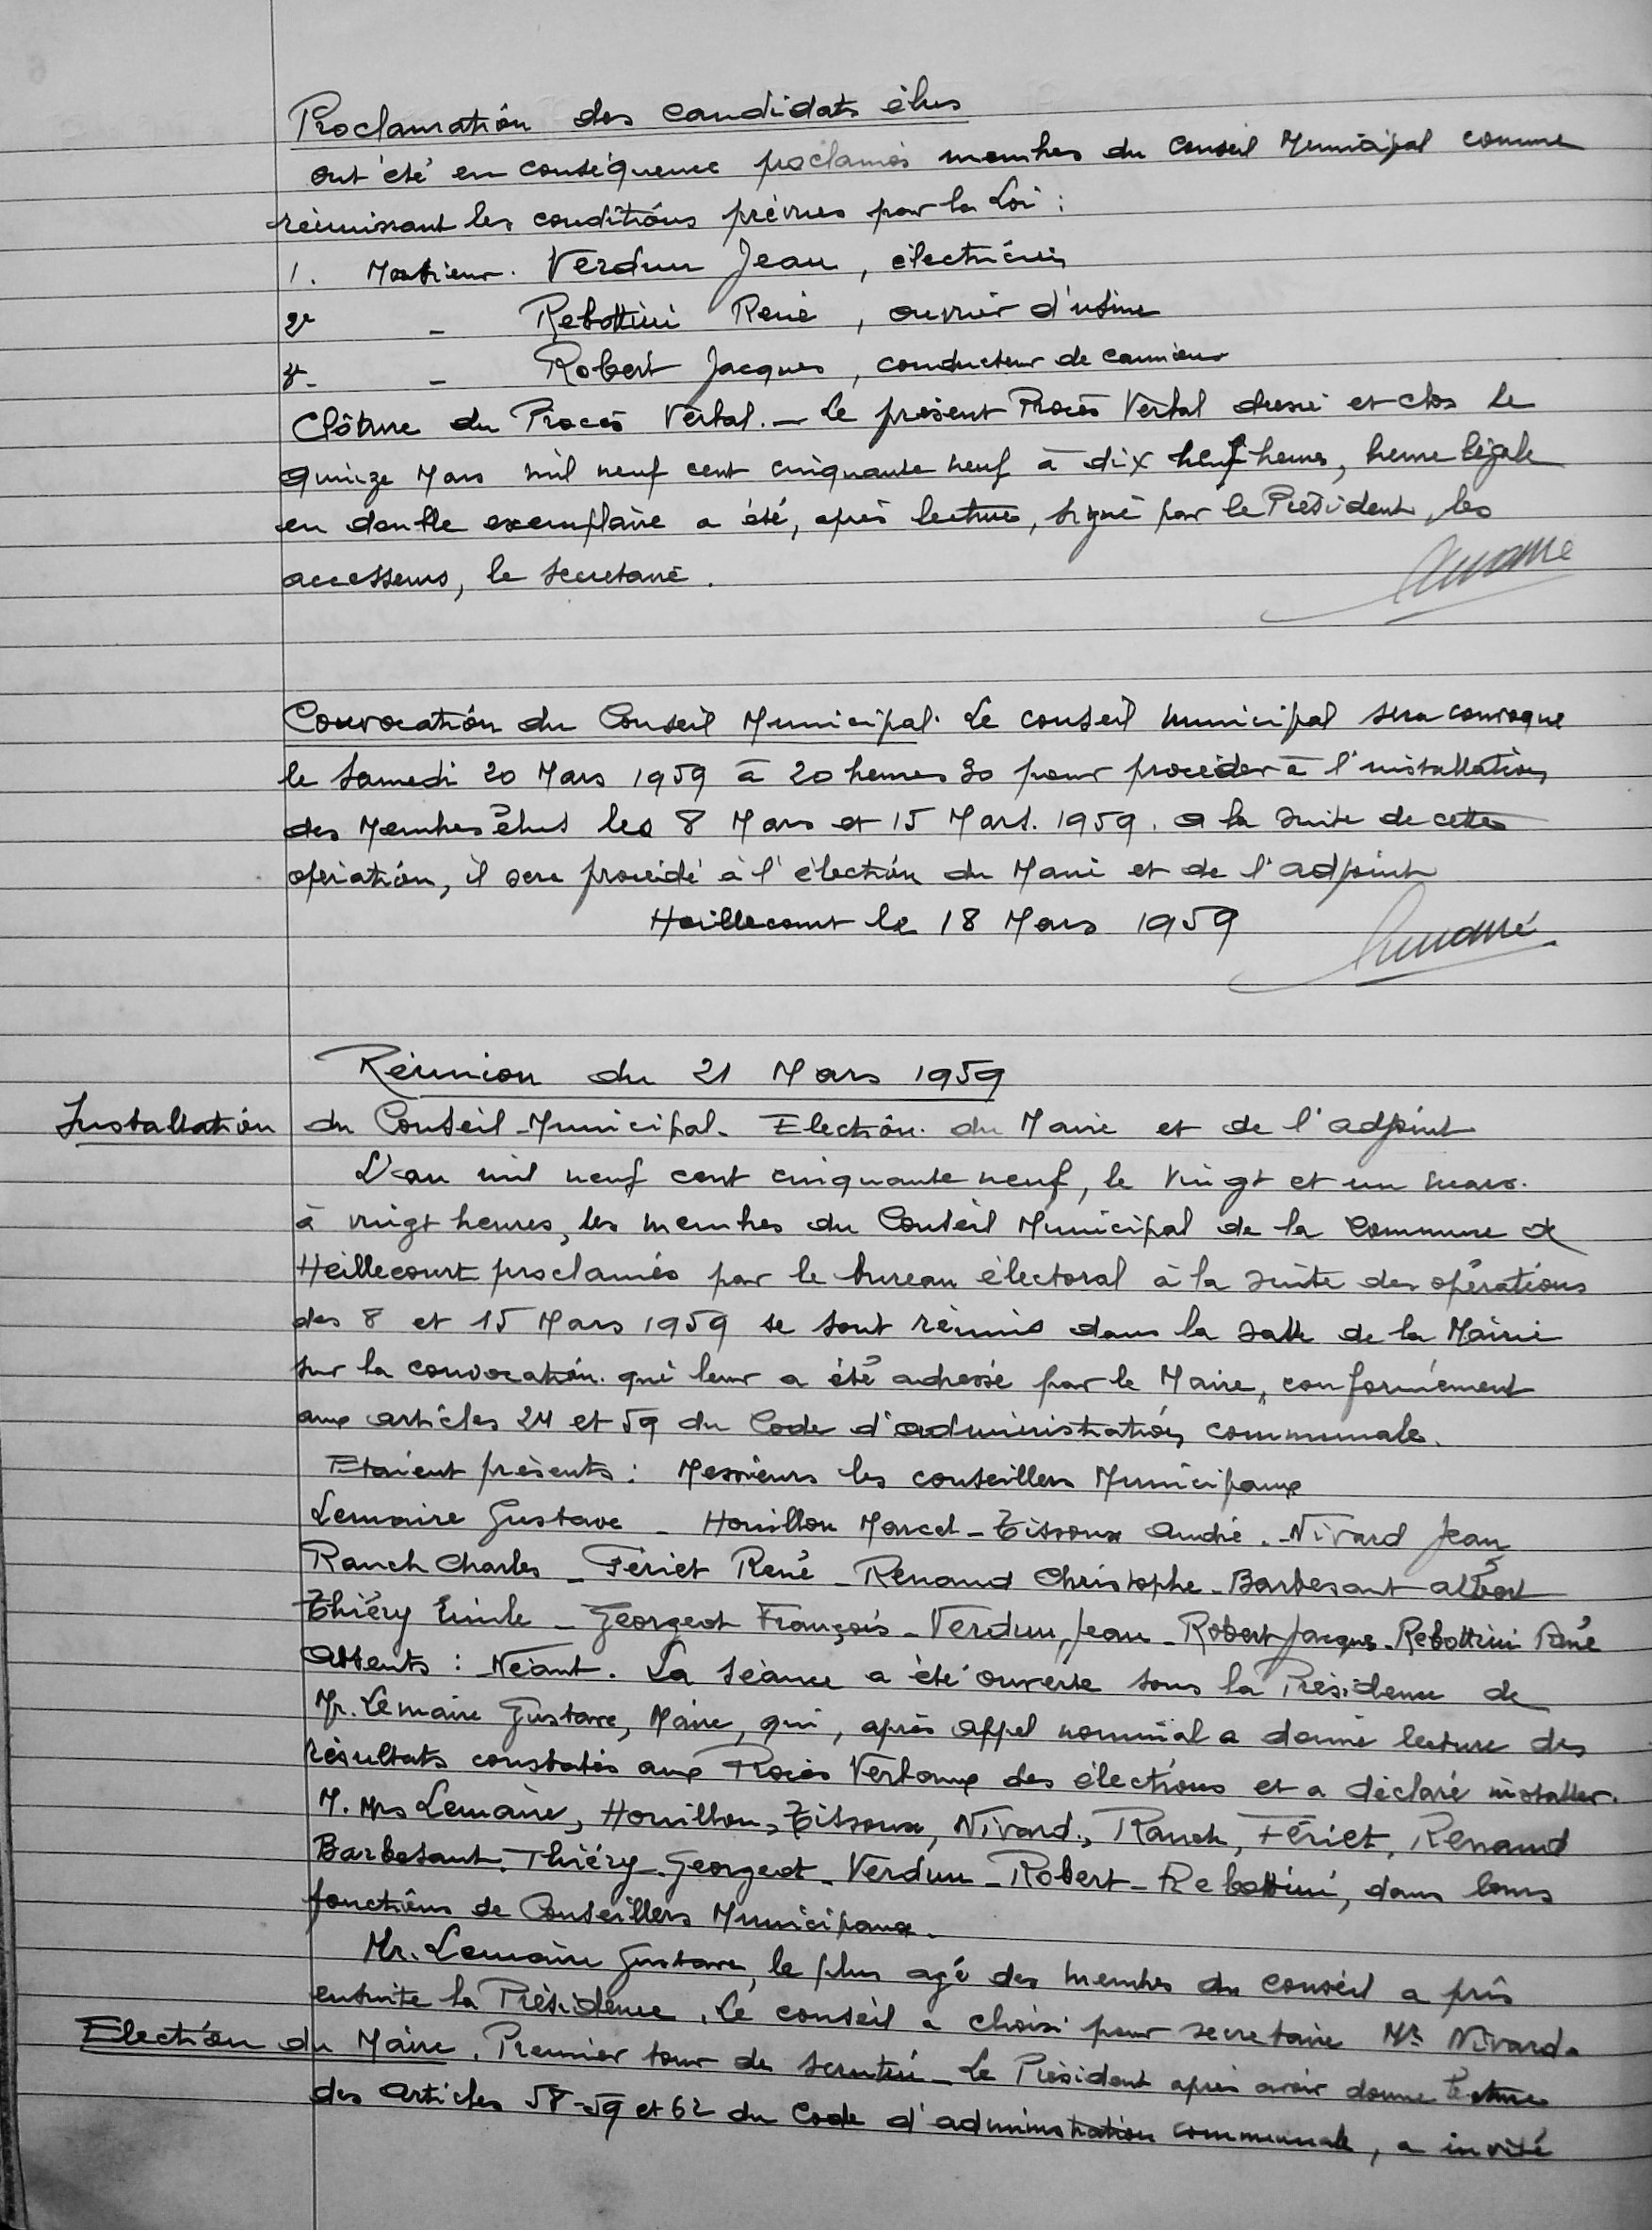 Proclamation des candidats élus
ont été en conséquence proclamés membres du Conseil Municipal comme
réunissant les conditions prévues par la Loi :
1. Monsieur. Verdun Jean, électricien
2e - Rebottini René, ouvrier d'usine
3e - Robert Jacques, conducteur de camions
Clôture du Procès Verbal. - Le présent Procès Verbal dressé et clos le
quinze Mars mil neuf cent cinquante neuf à dix neuf heures, heure légale
en double exemplaire a été, après lecture, signé par le Président, les
accesseurs, le secretaire.
Convocation du Conseil Municipal. Le conseil municipal sera convoqué
le Samedi 20 Mars 1959 à 20 heures 30 pour procéder à l'installation
des Membres élus les 8 Mars et 15 Mars. 1959. a la suite de cette
opération, il sera procédé à l'élection du Maire et de l'adjoint
Heillecourt le 18 Mars 1959
Réunion du 21 Mars 1959
Installation du Conseil-Municipal. Election du Maire et de l'adjoint
L'an mil neuf cent cinquante neuf, le vingt et un mars.
à vingt heures, les membres du Conseil Municipal de la Commune de
Heillecourt proclamés par le bureau électoral à la suite des opérations
des 8 et 15 Mars 1959 se sont réunis dans la salle de la Mairie
sur la convocation qui leur a été adressé par le Maire, conformément
aux articles 24 et 59 du Code d'administration communale.
Etaient présents : Messieurs les conseillers Municipaux
Lemaire Gustave - Houillon Marcel - Tissoux André - Nivard Jean
Rauch Charles - Fériet René - Renaud Christophe - Barbesant albert
Thiéry Emile - Georgeot François - Verdun Jean - Robert Jacques - Rebottini René
Absents : Néant. La séance a été ouverte sous la Présidence de
Mr. Lemaire Gustave, Maire, qui, après appel nominal a donné lecture des
résultats constatés aux Procès Verbaux des élections et a déclaré installer.
M. Mrs Lemaire, Houillon, Tissoux, Nivard, Rauch, Fériet, Renaud
Barbesant. Thiéry - Georgeot - Verdun - Robert - Rebottini, dans leurs
fonctions de Conseillers Municipaux.
Mr. Lemaire Gustave, le plus agé des membres du conseil a pris
ensuite la Présidence. Le conseil a choisi pour secretaire Mr Nivard.
Election du Maire. Premier tour de scrutin - Le Président après avoir donné lecture
des articles 58-59 et 62 du Code d'administration communale, a invité